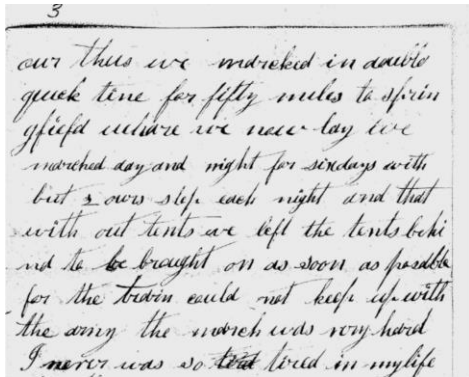 3
our thus we marched in double
quick time for fifty miles to sprin
gfield whare we now lay we
marched day and night for sixdays with
but 2 ours slep each night and that
with out tents we left the tents behi
nd to be brought on as soon as possable
for the train could not keep up with
the army the march was very hard
I never was so tired in my life